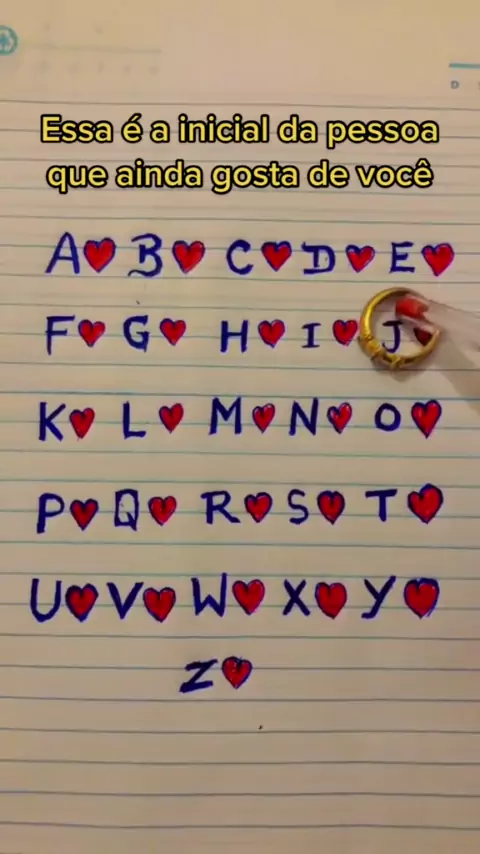 Essa é a inicial da pessoa
que ainda gosta de você
A B C D E
F G H I J
K L M N O
P Q R S T
U V W X Y
Z
D